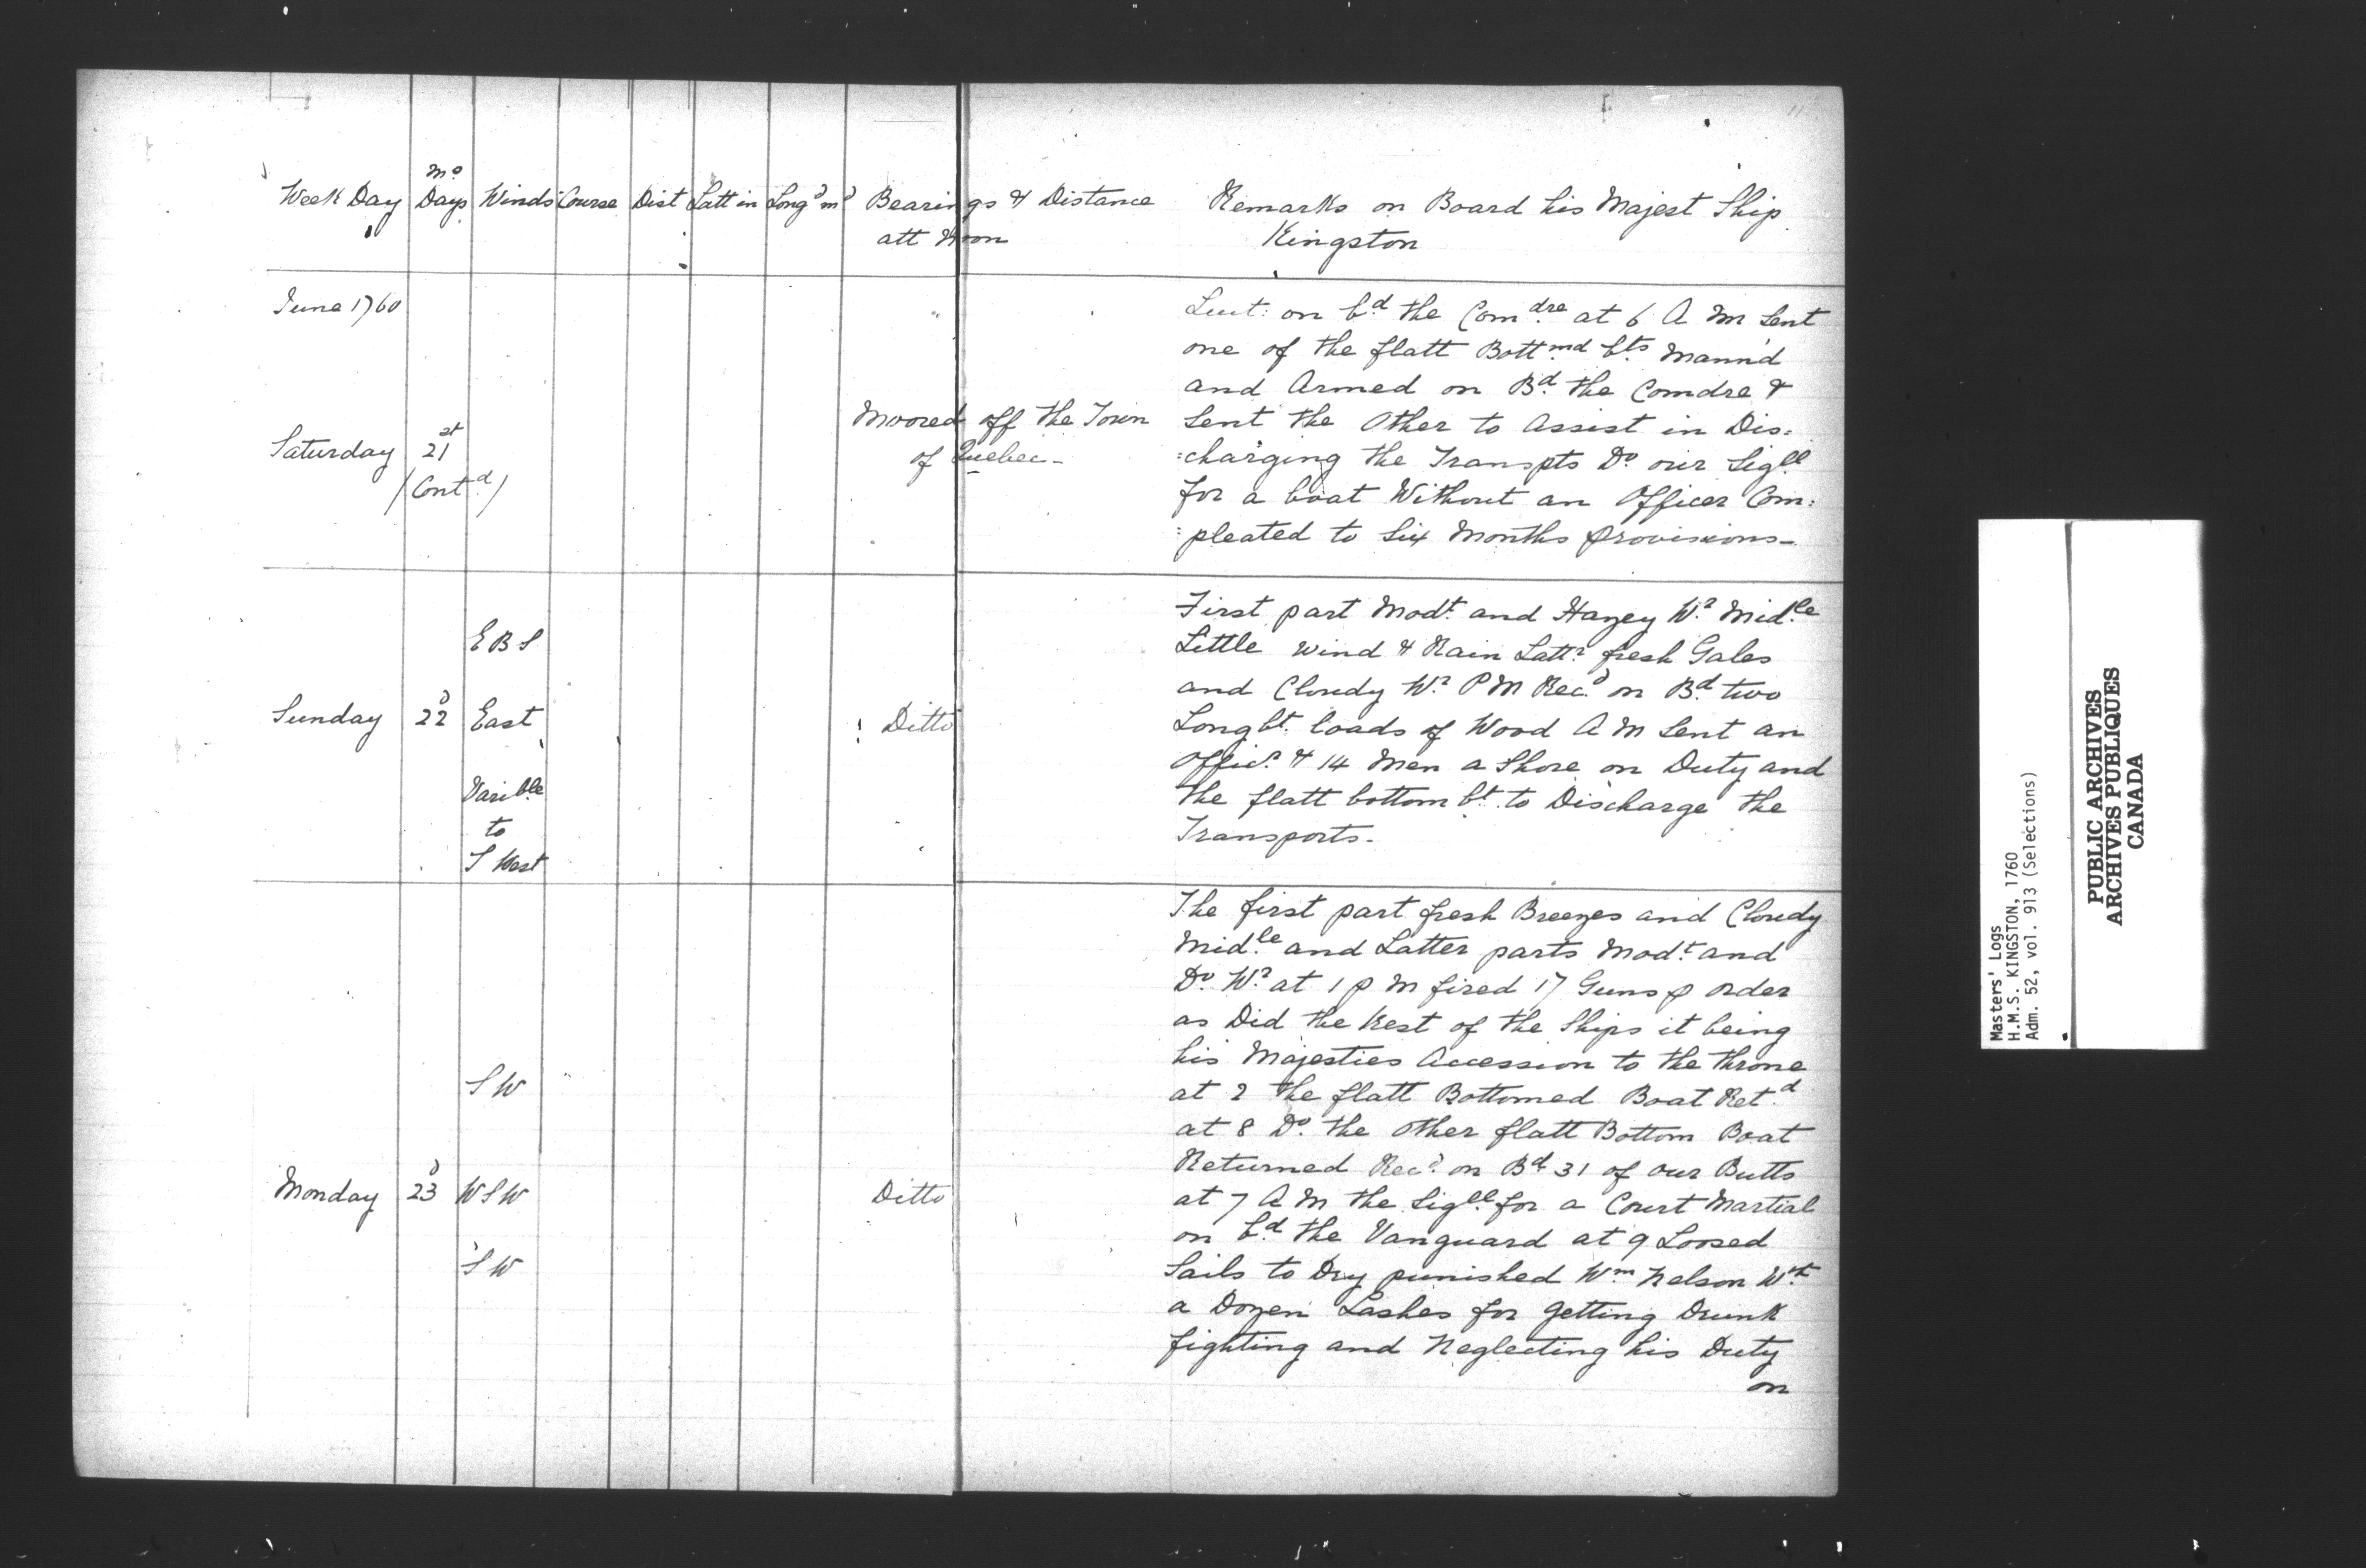 11
Week Day | Mo Days | Winds | Course | Dist | Latt in | Longd in | Bearings & Distance att Noon | Remarks on Board his Majest Ship Kingston
June 1760
Saturday 21st (Contd)
Moored off the Town
of Quebec-
Lieut: on bd the Comdre at 6 A M Sent
one of the flatt Bottmd bts Mann'd
and Armed on Bd the Comdre &
Sent the Other to Assist in Dis:
:charging the Transpts Do our Sigll
for a boat Without an Officer Com:
:pleated to Six Months Provisions-
Sunday 22d
E B S
East
Varible
to
S West
Ditto
First part Modt and Hazey Wr Midle
Little wind & Rain Lattr fresh Gales
and Cloudy Wr P M Recd on Bd two
Longbt loads of Wood A M Sent an
Officr & 14 Men a Shore on Duty and
the flatt bottom bt to Discharge the
Transports.
Monday 23d
S W
W S W
S W
Ditto
The first part fresh Breezes and Cloudy
Midle and Latter parts Modt and
Do Wr at 1 p m fired 17 Guns p order
as Did the Rest of the Ships it being
his Majesties Accession to the throne
at 2 the flatt Bottomed Boat Retd
at 8 Do the Other flatt Bottom Boat
Returned Recd on Bd 31 of our Butts
at 7 A M the Sigll for a Court Martial
on bd the Vanguard at 9 Loosed
Sails to Dry punished Wm Nelson Wth
a Dozen Lashes for getting Drunk
fighting and Neglecting his Duty
on
Masters' Logs
H.M.S. KINGSTON, 1760
Adm. 52, vol. 913 (Selections)
PUBLIC ARCHIVES
ARCHIVES PUBLIQUES
CANADA